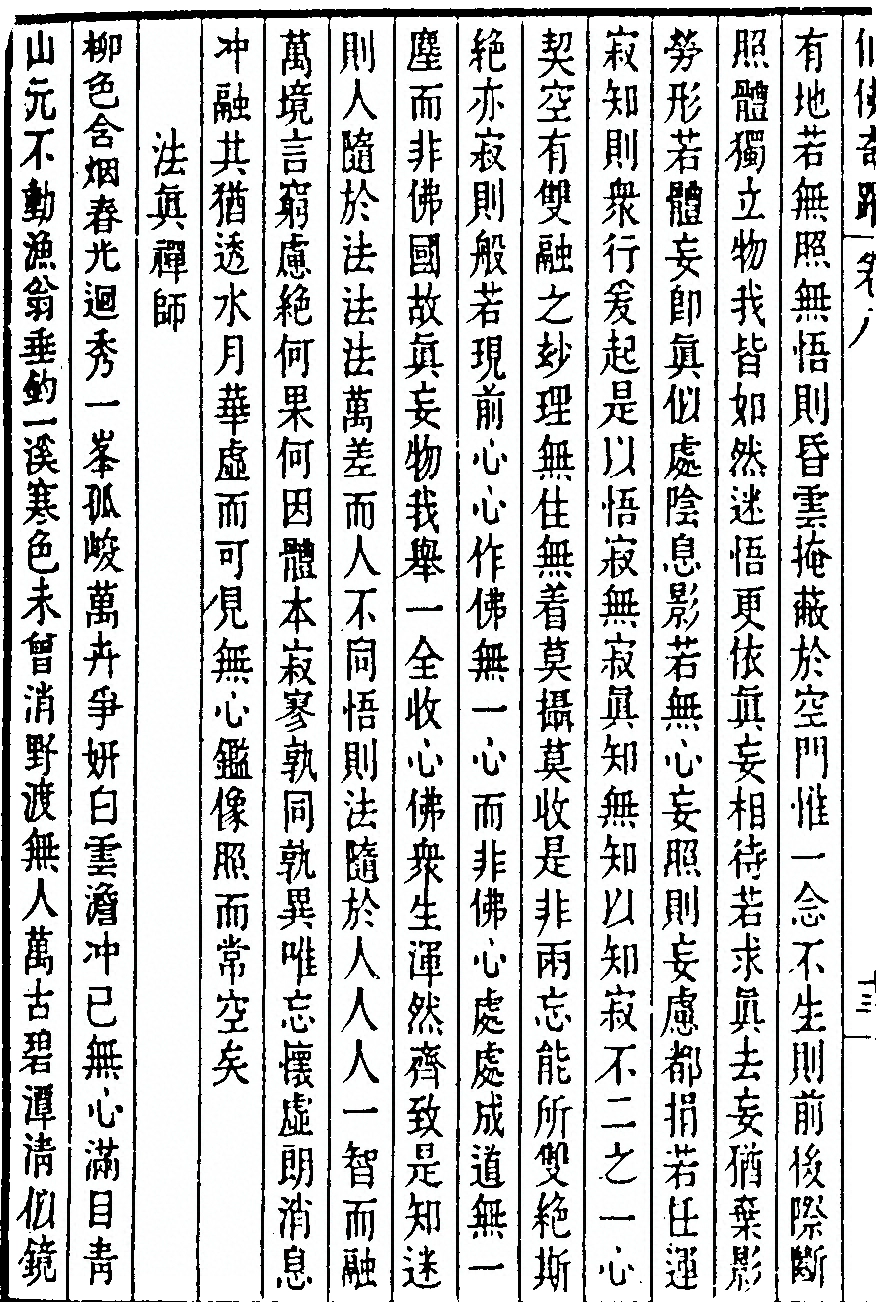 仙佛奇踪 卷八 十三
有地若無照無悟則昏雲掩蔽於空門惟一念不生則前後際斷
照體獨立物我皆如然迷悟更依眞妄相待若求眞去妄猶棄影
勞形若體妄卽眞似處陰息影若無心妄照則妄慮都捐若任運
寂知則衆行爰起是以悟寂無寂眞知無知以知寂不二之一心
契空有雙融之玅理無住無着莫攝莫收是非兩忘能所雙絶斯
絶亦寂則般若現前心心作佛無一心而非佛心處處成道無一
塵而非佛國故眞妄物我舉一全收心佛衆生渾然齊致是知迷
則人隨於法法法萬差而人不同悟則法隨於人人人一智而融
萬境言窮慮絶何果何因體本寂寥孰同孰異唯忘懷虛朗消息
冲融其猶透水月華虛而可見無心鑑像照而常空矣
法眞禪師
柳色含烟春光迴秀一峯孤峻萬卉爭妍白雲澹冲已無心滿目青
山元不動漁翁垂釣一溪寒色未曾消野渡無人萬古碧潭清似鏡